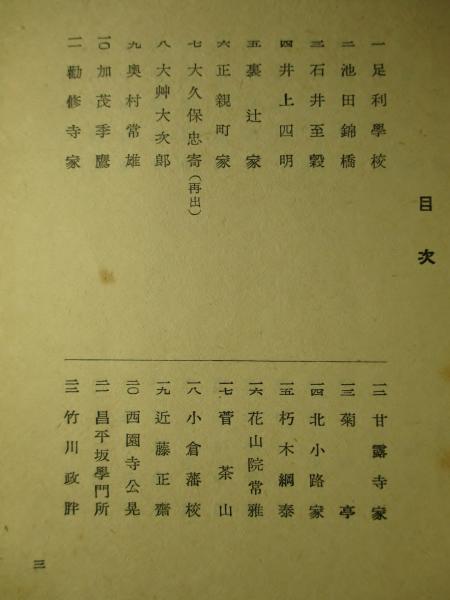 目次
一 足利學校
二 池田錦橋
三 石井至穀
四 井上四明
五 裏辻家
六 正親町家
七 大久保忠寄(再出)
八 大艸大次郎
九 奥村常雄
一〇 加茂季鷹
一一 勸修寺家
一二 甘露寺家
一三 菊亭
一四 北小路家
一五 朽木綱泰
一六 花山院常雅
一七 菅茶山
一八 小倉藩校
一九 近藤正齋
二〇 西園寺公晃
二一 昌平坂學門所
二二 竹川政胖
三